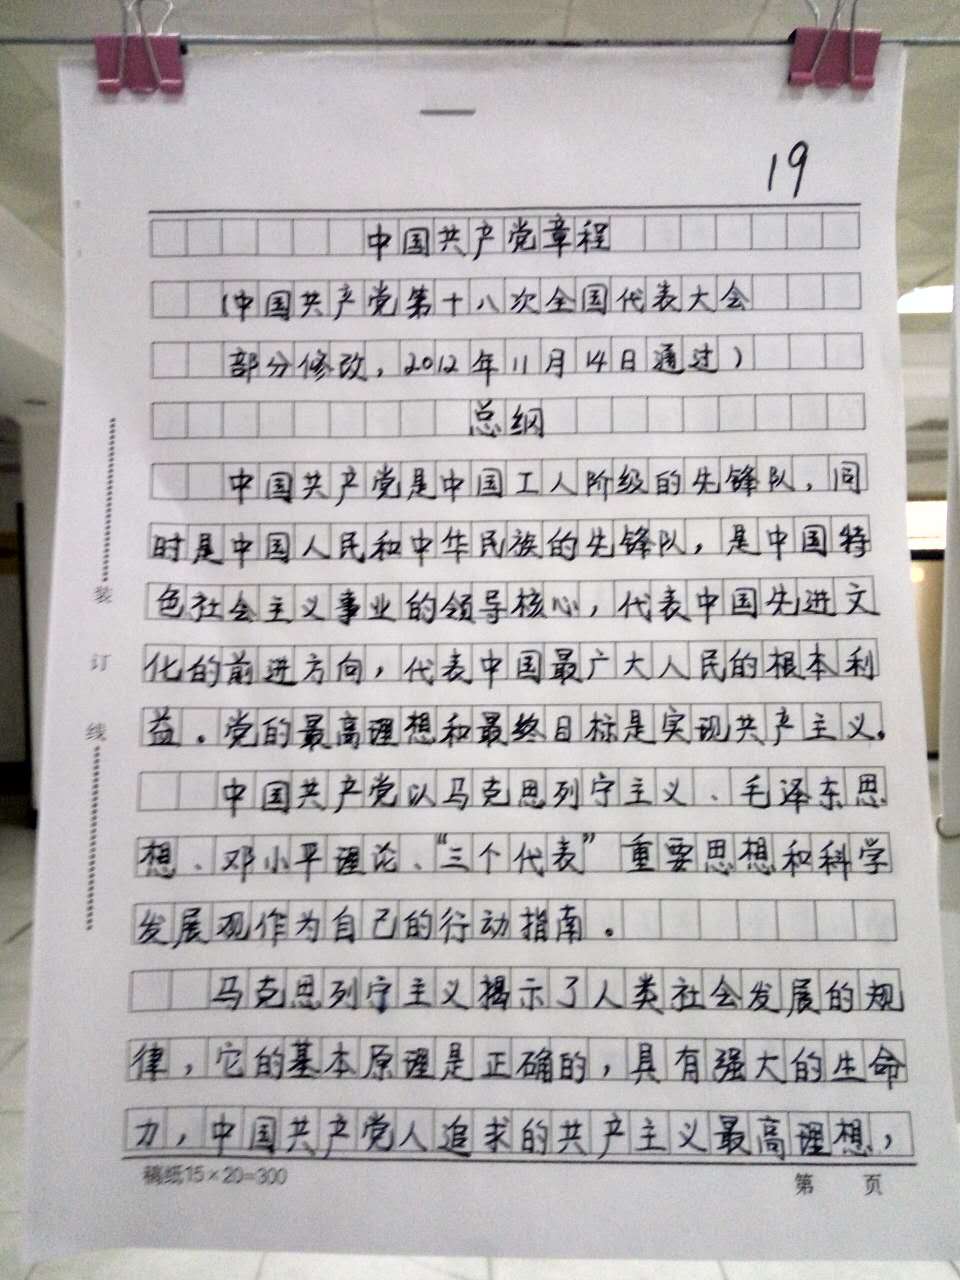 19
中国共产党章程
(中国共产党第十八次全国代表大会
部分修改,2012年11月14日通过)
总纲
中国共产党是中国工人阶级的先锋队,同
时是中国人民和中华民族的先锋队,是中国特
色社会主义事业的领导核心,代表中国先进文
化的前进方向,代表中国最广大人民的根本利
益。党的最高理想和最终目标是实现共产主义。
中国共产党以马克思列宁主义、毛泽东思
想、邓小平理论、“三个代表”重要思想和科学
发展观作为自己的行动指南。
马克思列宁主义揭示了人类社会发展的规
律,它的基本原理是正确的,具有强大的生命
力,中国共产党人追求的共产主义最高理想,
装
订
线
稿纸15×20=300
第 页